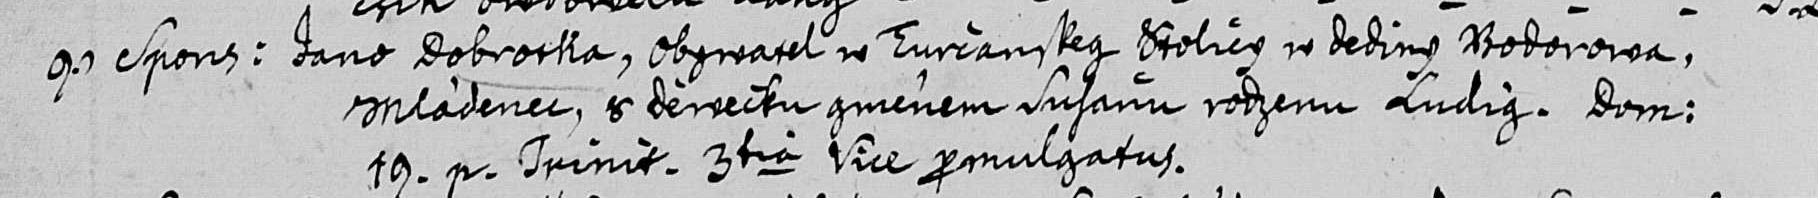 9.) Spons: Jano Dobrotka, Obywatel w Turčanskeg Stolicy w dediny Bodorowa,
Mládenec, s dewečku gménem Susanu rodzenu Ludig. Dom:
19. p. Trinit. 3tia Vice promulgatus.